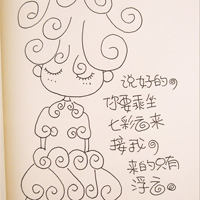 说好的。
你要乘坐
七彩云来
接我。
来的只有
浮云。